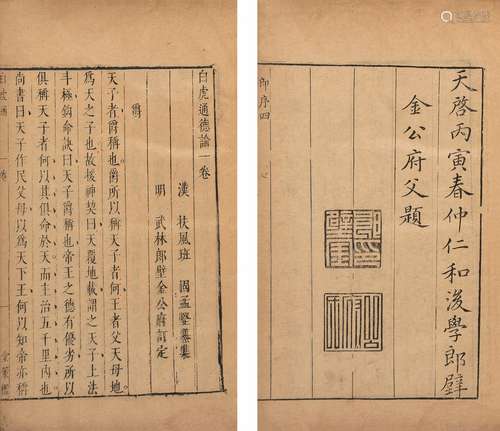 天啓丙寅春仲仁和後學郎璧
金公府父題
郎序四
白虎通德論一卷
漢 扶風班 固孟堅纂集
明 武林郎璧金公府訂定
爵
天子者爵稱也爵所以稱天子者何王者父天母地
爲天之子也故援神契曰天覆地載謂之天子上法
斗極鉤命訣曰天子爵稱也帝王之德有優劣所以
俱稱天子者何以其俱命於天而主治五千里內也
尚書曰天子作民父母以爲天下王何以知帝亦稱
一卷